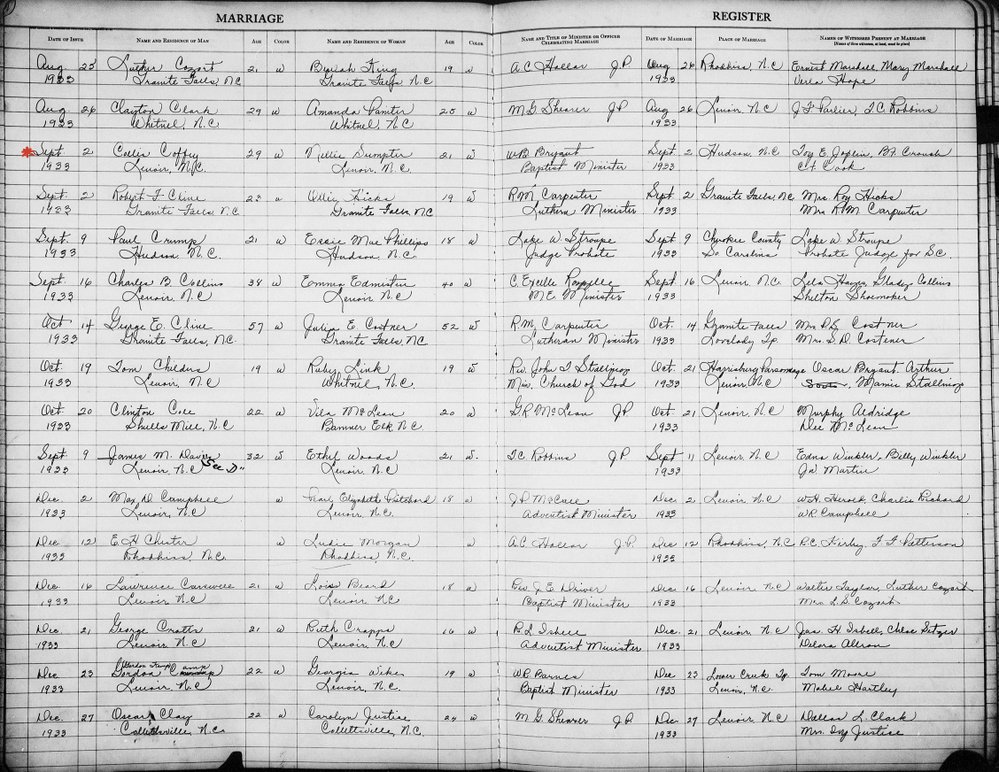 MARRIAGE REGISTER
DATE OF ISSUE NAME AND RESIDENCE OF MAN AGE COLOR NAME AND RESIDENCE OF WOMAN AGE COLOR NAME AND TITLE OF MINISTER OR OFFICER CELEBRATING MARRIAGE DATE OF MARRIAGE PLACE OF MARRIAGE NAMES OF WITNESSES PRESENT AT MARRIAGE
Aug 23 Luther Cozart 21 w King 19 w A C Hollar J P Aug 26 Rhodhiss, N.C Ernest Marshall, Mary Marshall
1933 Granite Falls, N.C Granite Falls N.C 1933 Hope
Aug 26 Clayton Clark 29 w Amanda Panter 25 w M G Shearer J P Aug 26 Lenoir, N.C J F Parlier, T.C. Robbins
1933 Whitnel, N.C. Whitnel, N.C 1933
Sept 2 Collis Coffey 29 w Nellie Sumpter 21 w W B Bryant Sept 2 Hudson, N.C Toy E. Joplin, B F Crouch
1933 Lenoir, N.C. Lenoir, N.C. Baptist Minister 1933 Cook
Sept. 2 Robert F Cline 23 w Ollie Hicks 19 w R M Carpenter Sept. 2 Granite Falls, N.C Mrs Roy Hicks
1933 Granite Falls, N.C Granite Falls, N.C Luthern Minister 1933 Mrs R M Carpenter
Sept. 9 Paul Crump 21 w Essie Mae Phillips 18 w Lake W Stroupe Sept. 9 Cherokee County Lake W Stroupe
1933 Hudson, N.C. Hudson, N.C. Judge Probate 1933 So Carolina Probate Judge for S.C.
Sept. 16 Charles B Collins 38 w Emma Edmisten 40 w C. Excelle Rozzelle Sept 16 Lenoir, N.C Lela Hayes, Gladys Collins
1933 Lenoir, N.C Lenoir N.C M.E. Minister 1933 Shelton Shoemaker
Oct 14 George E. Cline 57 w Julia E Costner 52 w R.M, Carpenter Oct. 14 Granite Falls Mrs Costner
1933 Granite Falls, N.C. Granite Falls, N.C Lutheran Minister 1933 Lovelady Tp. Mrs. S. D. Costener
Oct. 19 Tom Childers 19 w Ruby Link 19 w Rev. John T Stallings Oct. 21 Harrisburg Parsonage Oscar Bryant Arthur
1933 Lenoir, N.C Whitnel, N.C. Min, Church of God 1933 Lenoir N.C Mamie Stallings
Oct. 20 Clinton Cole 22 w Vila McLean 20 w G.R. McLean J P Oct. 21 Lenoir, N.C Murphy Aldridge
1933 Shulls Mill, N.C Banner Elk N.C 1933 Dee McLean
Sept 9 James M. Davis "See D" 32 w Ethel Woods 21 w T.C Robbins J P Sept 11 Lenoir, N.C Edna Winkler, Billy Winkler
1933 Lenoir N.C Lenoir, N.C. 1933 Martin
Dec. 2 Max D Campbell w Pearl Elizabeth Pritchard 18 w J.P. McCall Dec. 2 Lenoir, N.C W.H. Herold, Charlie Pichard
1933 Lenoir, N.C Lenoir. N.C. Adventist Minister 1933 W.P. Campbell
Dec 12 E H Chester w Ludie Morgan w A.C. Hollar J P. Dec 12 Rhodhiss, N.C R.C. Kirby, T F Patterson
1933 Rhodhiss N.C. Rhodhiss, N.C. 1933
Dec 16 Lawrence Carswell 21 w Lois Beard 18 w Rev J.E. Driver Dec. 16 Lenoir N.C Walter Taylor, Luther Cozart
1933 Lenoir N.C Lenoir N.C Baptist Minister 1933 Mrs L.D. Cozart
Dec. 21 George Crotts 21 w Ruth Crapps 16 w R L Isbell Dec. 21 Lenoir, N.C Jas. H Isbell, Chloe Setzer
1933 Lenoir N.C Lenoir, N.C. Adventist Minister 1933
Dec 23 Gordon Camp 22 w Georgia 19 w W P Barnes Dec 23 Lower Creek Tp. Tom Moore
1933 Lenoir, N.C Lenoir, N.C. Baptist Minister 1933 Lenoir, N.C. Mabel Hartley
Dec. 27 Oscar Clay 22 w Carolyn Justice 24 w M G Shearer J P Dec 27 Lenoir, N.C L. Clark
1933 Collettsville, N.C. Collettsville, N.C. 1933 Mrs. Justice